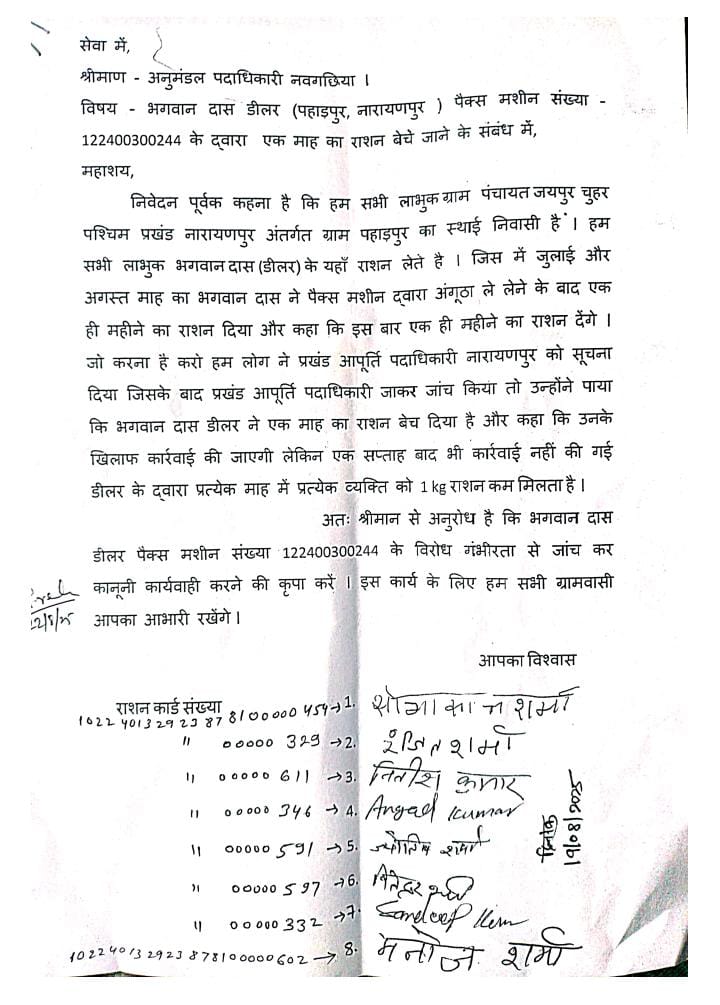 सेवा में,
श्रीमाण - अनुमंडल पदाधिकारी नवगछिया ।
विषय - भगवान दास डीलर (पहाड़पुर, नारायणपुर ) पैक्स मशीन संख्या -
122400300244 के द्वारा एक माह का राशन बेचे जाने के संबंध में,
महाशय,
निवेदन पूर्वक कहना है कि हम सभी लाभुक ग्राम पंचायत जयपुर चुहर
पश्चिम प्रखंड नारायणपुर अंतर्गत ग्राम पहाड़पुर का स्थाई निवासी है । हम
सभी लाभुक भगवान दास (डीलर) के यहाँ राशन लेते है । जिस में जुलाई और
अगस्त माह का भगवान दास ने पैक्स मशीन द्वारा अंगूठा ले लेने के बाद एक
ही महीने का राशन दिया और कहा कि इस बार एक ही महीने का राशन देंगे ।
जो करना है करो हम लोग ने प्रखंड आपूर्ति पदाधिकारी नारायणपुर को सूचना
दिया जिसके बाद प्रखंड आपूर्ति पदाधिकारी जाकर जांच किया तो उन्होंने पाया
कि भगवान दास डीलर ने एक माह का राशन बेच दिया है और कहा कि उनके
खिलाफ कार्रवाई की जाएगी लेकिन एक सप्ताह बाद भी कार्रवाई नहीं की गई
डीलर के द्वारा प्रत्येक माह में प्रत्येक व्यक्ति को 1 kg राशन कम मिलता है ।
अतः श्रीमान से अनुरोध है कि भगवान दास
डीलर पैक्स मशीन संख्या 122400300244 के विरोध गंभीरता से जांच कर
कानूनी कार्यवाही करने की कृपा करें । इस कार्य के लिए हम सभी ग्रामवासी
आपका आभारी रखेंगे ।
आपका विश्वास
राशन कार्ड संख्या
102240132923878100000454 → 1. शर्मा
" 00000 329 → 2. रंजित शर्मा
" 00000 611 → 3. नितीश कुमार
" 00000 346 → 4. Angad Kumar
" 00000 591 → 5. ज्योतिष शर्मा
" 00000 597 → 6.
" 00000 332 → 7. Sandeep
102240132923878100000602 → 8. मनोज शर्मा
दिनांक
19/08/2025